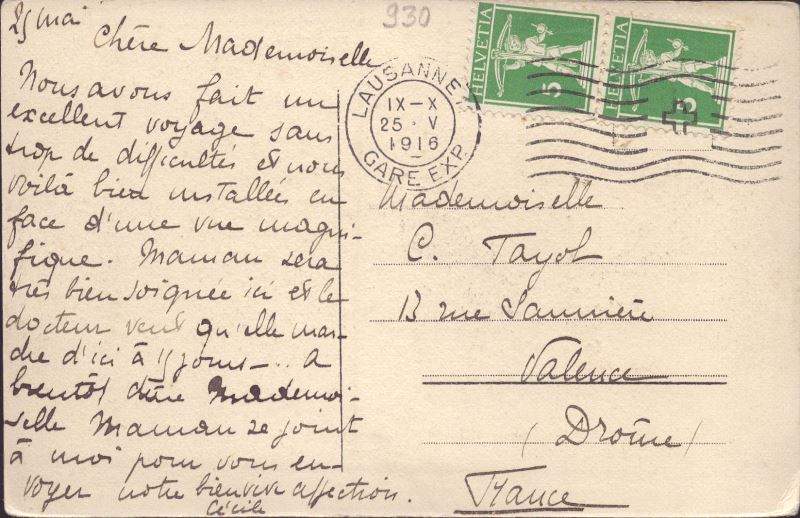 25 mai
930
Chère Mademoiselle
Nous avons fait un
excellent voyage sans
trop de difficultés et nous
voilà bien installées en
face d'une vue magni-
fique. Maman sera
très bien soignée ici et le
docteur veut qu'elle mar-
che d'ici à 15 jours... A
bientôt chère Mademoi-
selle Maman se joint
à moi pour vous en-
voyer notre bien vive affection.
Cécile
HELVETIA 5
HELVETIA 5
LAUSANNE 1
IX-X
25.V
1916
GARE EXP.
Mademoiselle
C. Tayot
13 rue Saunière
Valence
(Drôme)
France